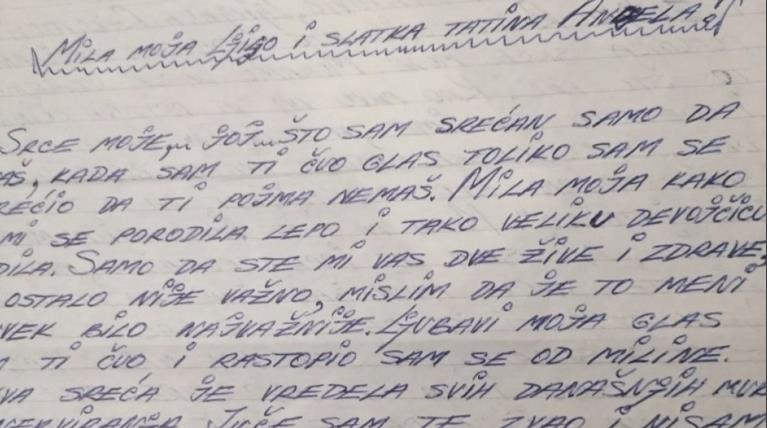 MILA MOJA I SLATKA TATINA ANĐELA!
SRCE MOJE,,, JOJ,,, ŠTO SAM SREĆAN SAMO DA
AŠ, KADA SAM TI ČUO GLAS TOLIKO SAM SE
REĆIO DA TI POJMA NEMAŠ. MILA MOJA KAKO
MI SE PORODILA LEPO I TAKO VELIKU DEVOJČICU
DILA. SAMO DA STE MI VAS DVE ŽIVE I ZDRAVE,
OSTALO NIJE VAŽNO, MISLIM DA JE TO MENI
VEK BILO NAJVAŽNIJE. LJUBAVI MOJA GLAS
TI ČUO I RASTOPIO SAM SE OD MILINE.
VA SREĆA JE VREDELA SVIH DANAŠNJIH MUK
JUČE SAM TE ZVAO I NISAM